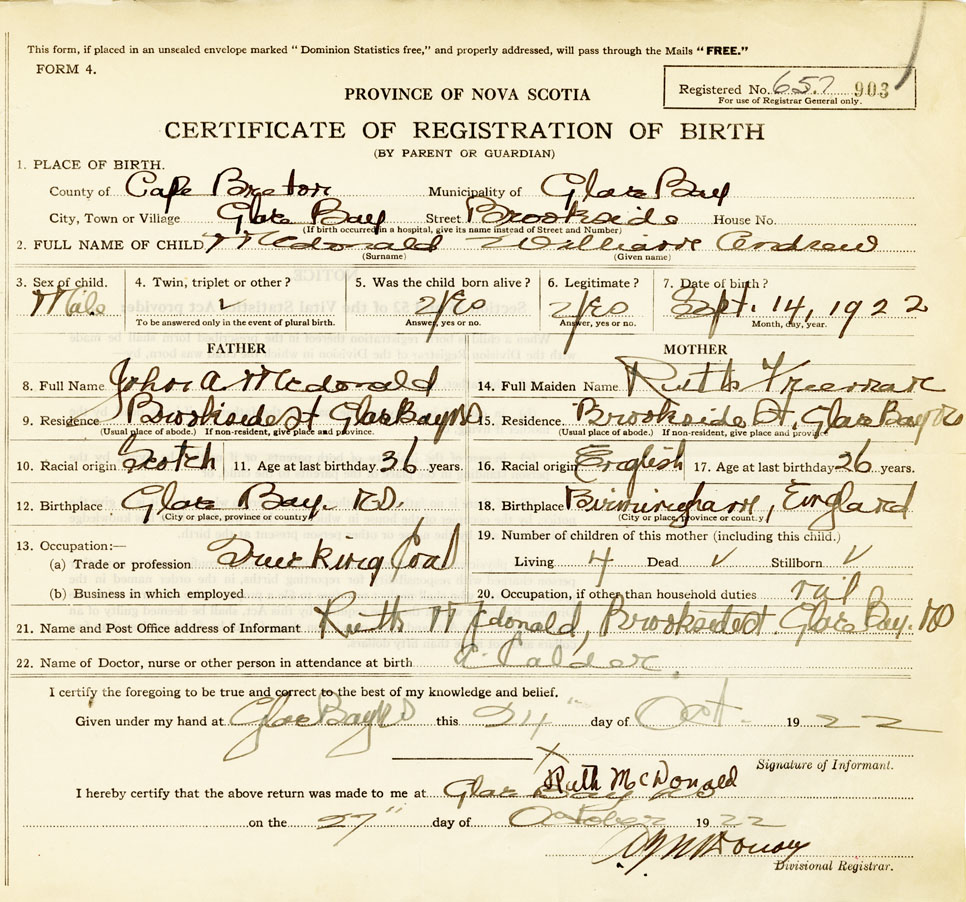 This form, if placed in an unsealed envelope marked "Dominion Statistics free," and properly addressed, will pass through the Mails "FREE."
FORM 4.
Registered No. 657 903
For use of Registrar General only.
PROVINCE OF NOVA SCOTIA
CERTIFICATE OF REGISTRATION OF BIRTH
(BY PARENT OR GUARDIAN)
1. PLACE OF BIRTH.
County of Cape Breton Municipality of Glace Bay
City, Town or Village Glace Bay Street Brookside House No.
(If birth occurred in a hospital, give its name instead of Street and Number)
2. FULL NAME OF CHILD McDonald William Andrew
(Surname) (Given name)
3. Sex of child. 4. Twin, triplet or other? 5. Was the child born alive? 6. Legitimate? 7. Date of birth?
Male ✓ Yes Yes Sept. 14, 1922
To be answered only in the event of plural birth. Answer, yes or no. Answer, yes or no. Month, day, year.
FATHER MOTHER
8. Full Name John A McDonald 14. Full Maiden Name Ruth Freeman
9. Residence Brookside St Glace Bay NS 15. Residence Brookside St, Glace Bay NS
(Usual place of abode.) If non-resident, give place and province. (Usual place of abode.) If non-resident, give place and province
10. Racial origin Scotch 11. Age at last birthday 36 years. 16. Racial origin English 17. Age at last birthday 26 years.
12. Birthplace Glace Bay N.S. 18. Birthplace Birmingham, England
(City or place, province or country) (City or place, province or country)
13. Occupation:— 19. Number of children of this mother (including this child.)
(a) Trade or profession Trucking Coal Living 4 Dead ✓ Stillborn ✓
(b) Business in which employed 20. Occupation, if other than household duties nil
21. Name and Post Office address of Informant Ruth McDonald, Brookside St. Glace Bay. NS
22. Name of Doctor, nurse or other person in attendance at birth Calder
I certify the foregoing to be true and correct to the best of my knowledge and belief.
Given under my hand at Glace Bay NS this 24" day of Oct. 1922
X
Signature of Informant.
Ruth McDonald
I hereby certify that the above return was made to me at Glace Bay NS
on the 27" day of October 1922
Divisional Registrar.